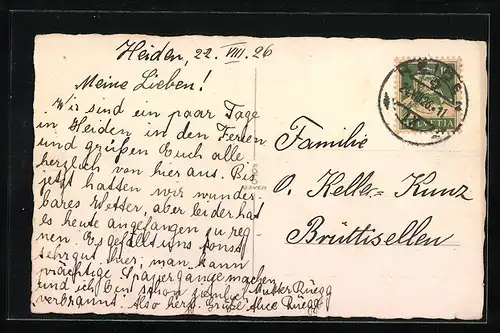 Heiden, 22. VIII. 26
Meine Lieben!
Wir sind ein paar Tage
in Heiden in den Ferien
und grüßen Euch alle
herzlich von hier aus. Bis
jetzt hatten wir wunder-
bares Wetter, aber leider hat
es heute angefangen zu reg
nen. Es gefällt uns sonst
sehr gut hier; man kann
prächtige Spaziergänge machen
und ich bin schon ziemlich
verbrannt. Also herzl. Grüße Alice Rüegg
Mutter Rüegg
Familie
O. Keller-Kunz
Brüttisellen
HELVETIA